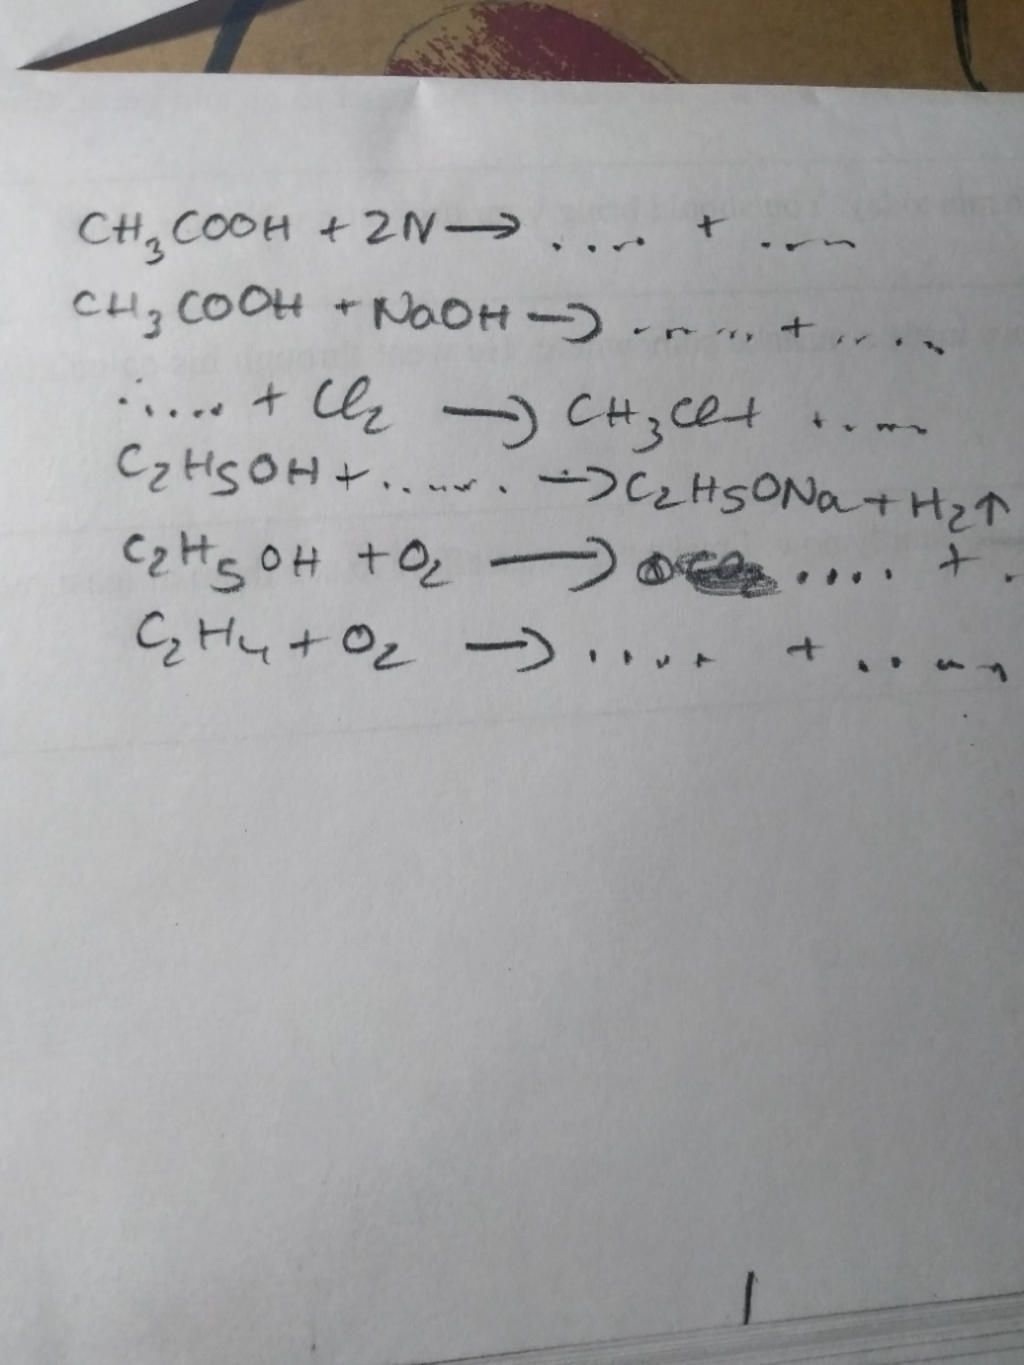 CH₃COOH + 2N → .... + ....
CH₃COOH + NaOH → ...... + .....
..... + Cl₂ → CH₃Cl + .....
C₂H₅OH + ....... → C₂H₅ONa + H₂↑
C₂H₅OH + O₂ → .... + .
C₂H₄ + O₂ → .... + ....